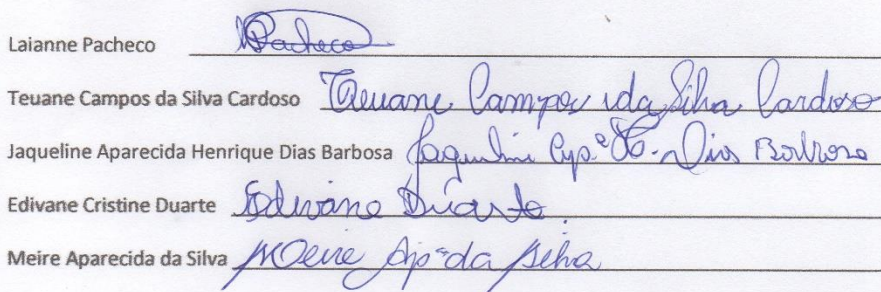 Laianne Pacheco Pacheco
Teuane Campos da Silva Cardoso Teuane Campos da Silva Cardoso
Jaqueline Aparecida Henrique Dias Barbosa Jaqueline Ap.ª H. Dias Barbosa
Edivane Cristine Duarte Edivane Duarte.
Meire Aparecida da Silva Meire Apª da Silva